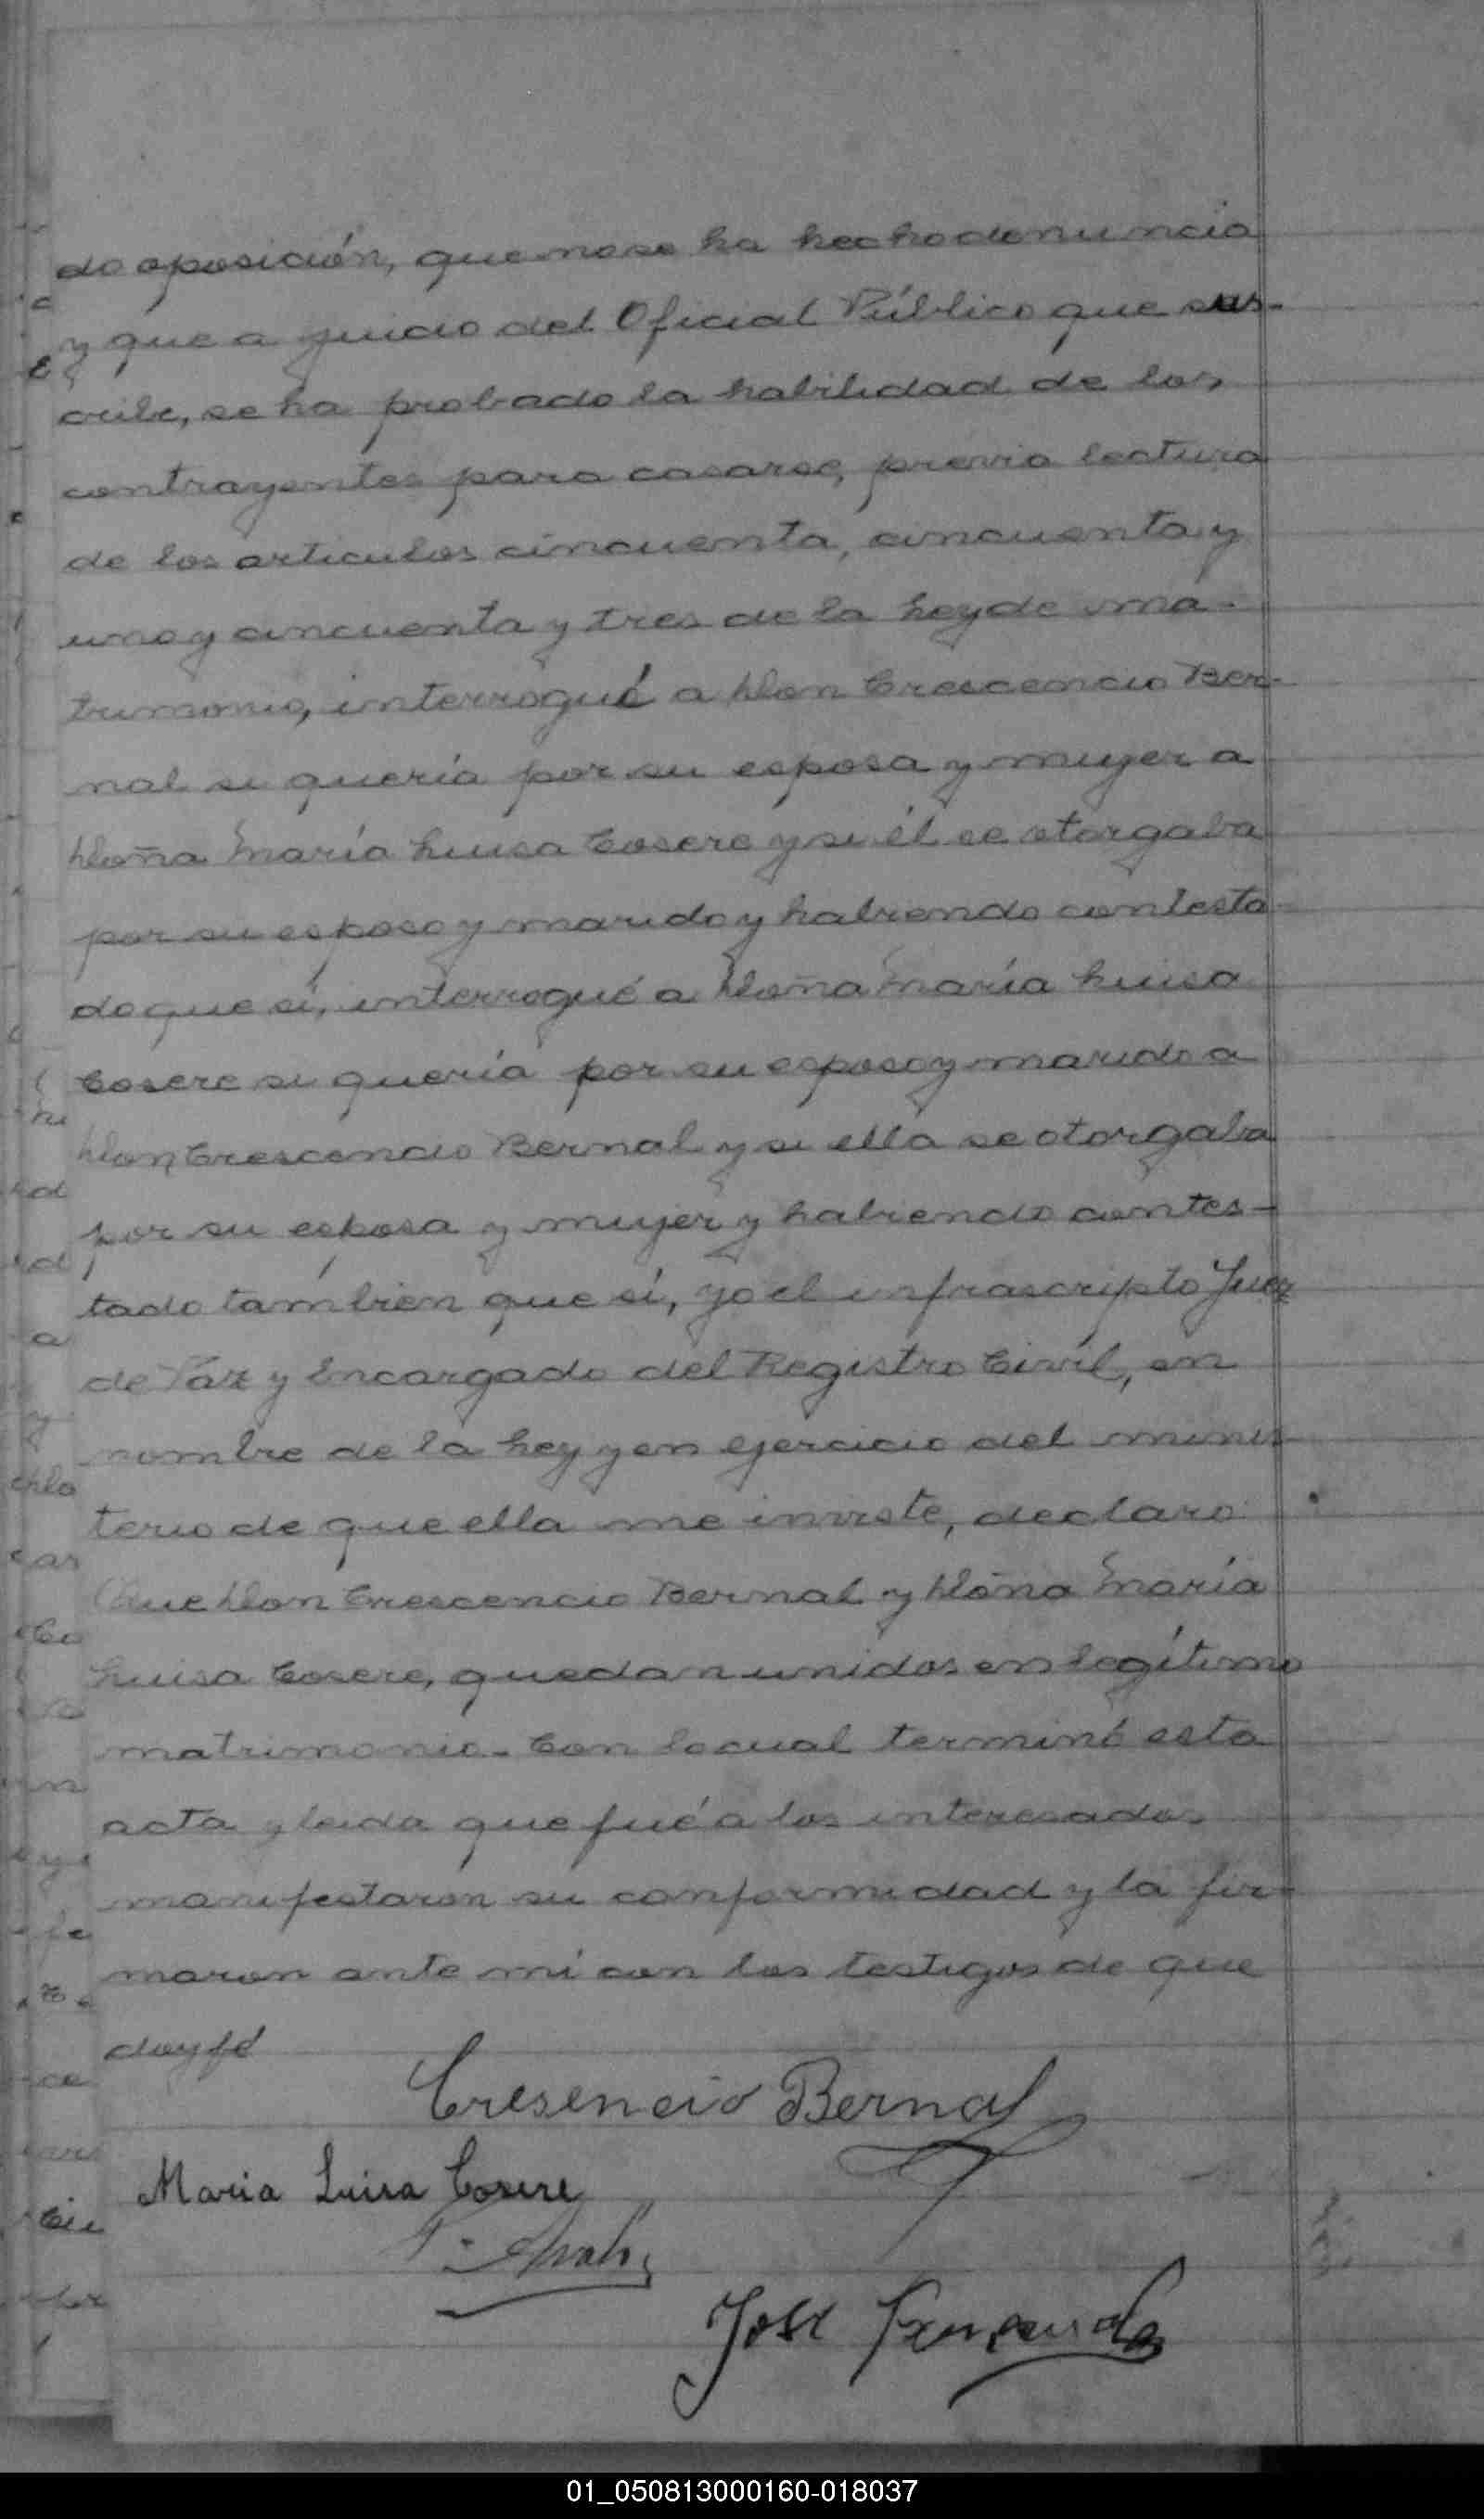 do oposición, que no se ha hecho denuncia
y que a juicio del Oficial Público que sus-
cribe, se ha probado la habilidad de los
contrayentes para casarse, previa lectura
de los articulos cincuenta, cincuenta y
uno y cincuenta y tres de la Ley de ma-
trimonio, interrogué a Don Crescencio Ber-
nal si quería por su esposa y mujer a
Doña María Luisa Cosere y si él se otorgaba
por su esposo y marido y habiendo contesta-
do que sí, interrogué a Doña María Luisa
Cosere si quería por su esposo y marido a
Don Crescencio Bernal y si ella se otorgaba
por su esposa y mujer y habiendo contes-
tado tambien que sí, yo el infrascripto Juez
de Páz y Encargado del Registro Civil, en
nombre de la Ley y en ejercicio del minis-
terio de que ella me inviste, declaro:
Que Don Crescencio Bernal y Doña María
Luisa Cosere, quedan unidos en legítimo
matrimonio. Con lo cual terminó esta
acta y leida que fué a los interesados
manifestaron su conformidad y la fir-
maron ante mí con los testigos de que
doy fé
Cresencio Bernal
Maria Luisa Cosere
José Fernandez
01_050813000160-018037